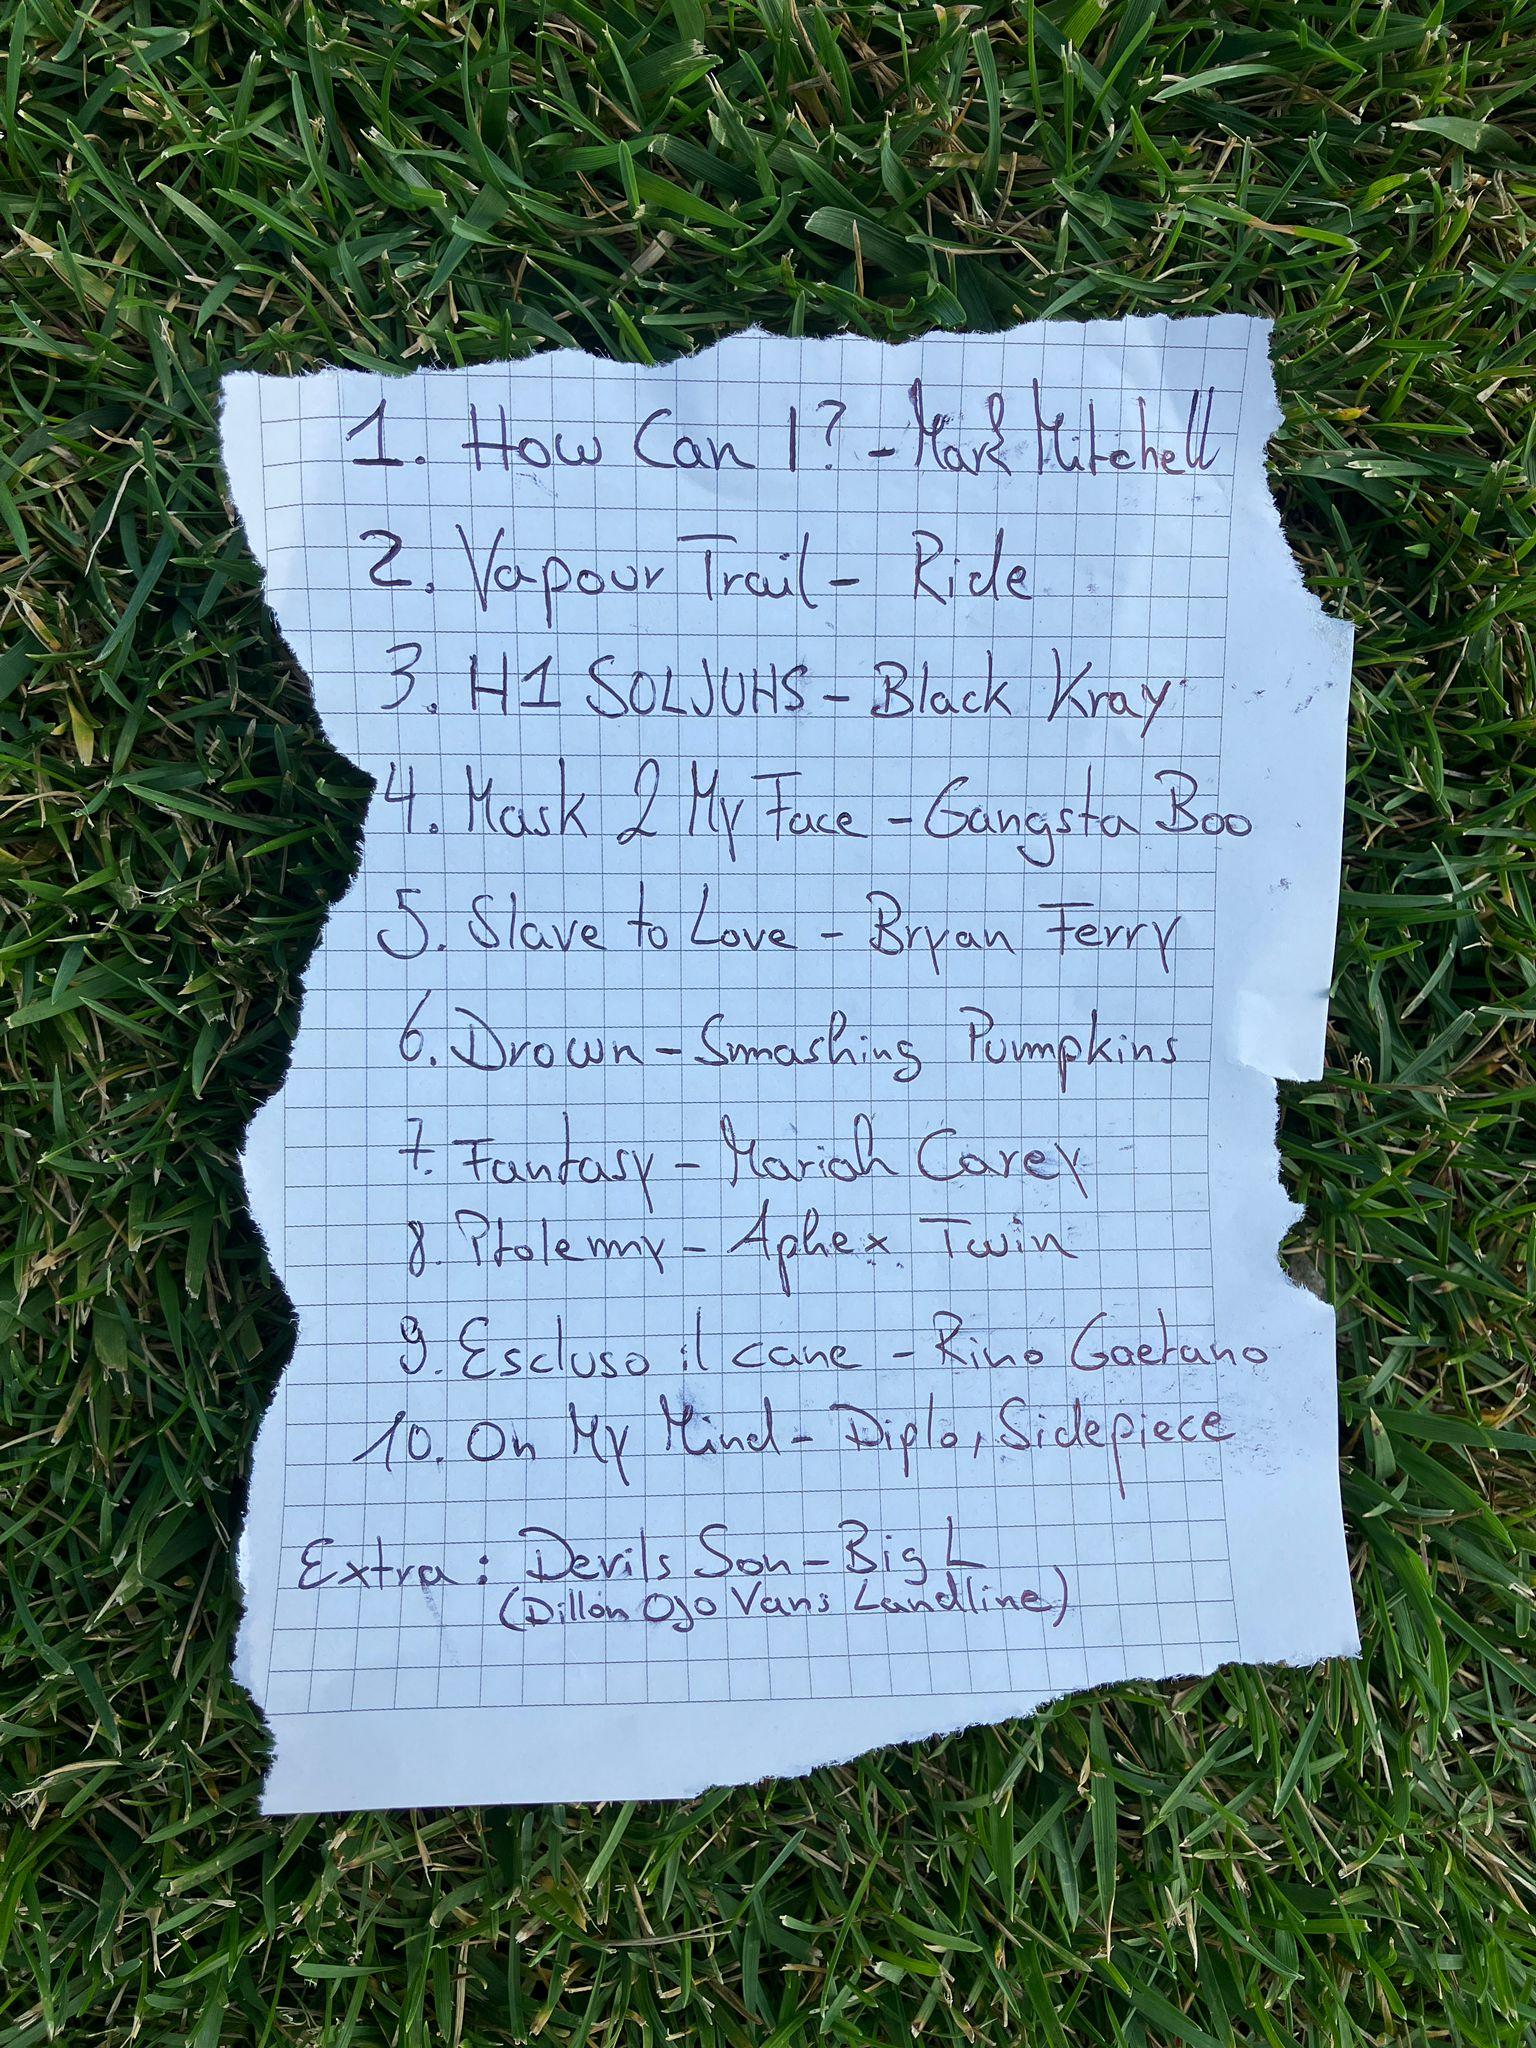 1. How Can I? - Mark Mitchell
2. Vapour Trail - Ride
3. H1 SOLJUHS - Black Kray
4. Mask 2 My Face - Gangsta Boo
5. Slave to Love - Bryan Ferry
6. Drown - Smashing Pumpkins
7. Fantasy - Mariah Carey
8. Ptolemy - Aphex Twin
9. Escluso il cane - Rino Gaetano
10. On My Mind - Diplo, Sidepiece
Extra: Devils Son - Big L
(Dillon Ojo Vans Landline)